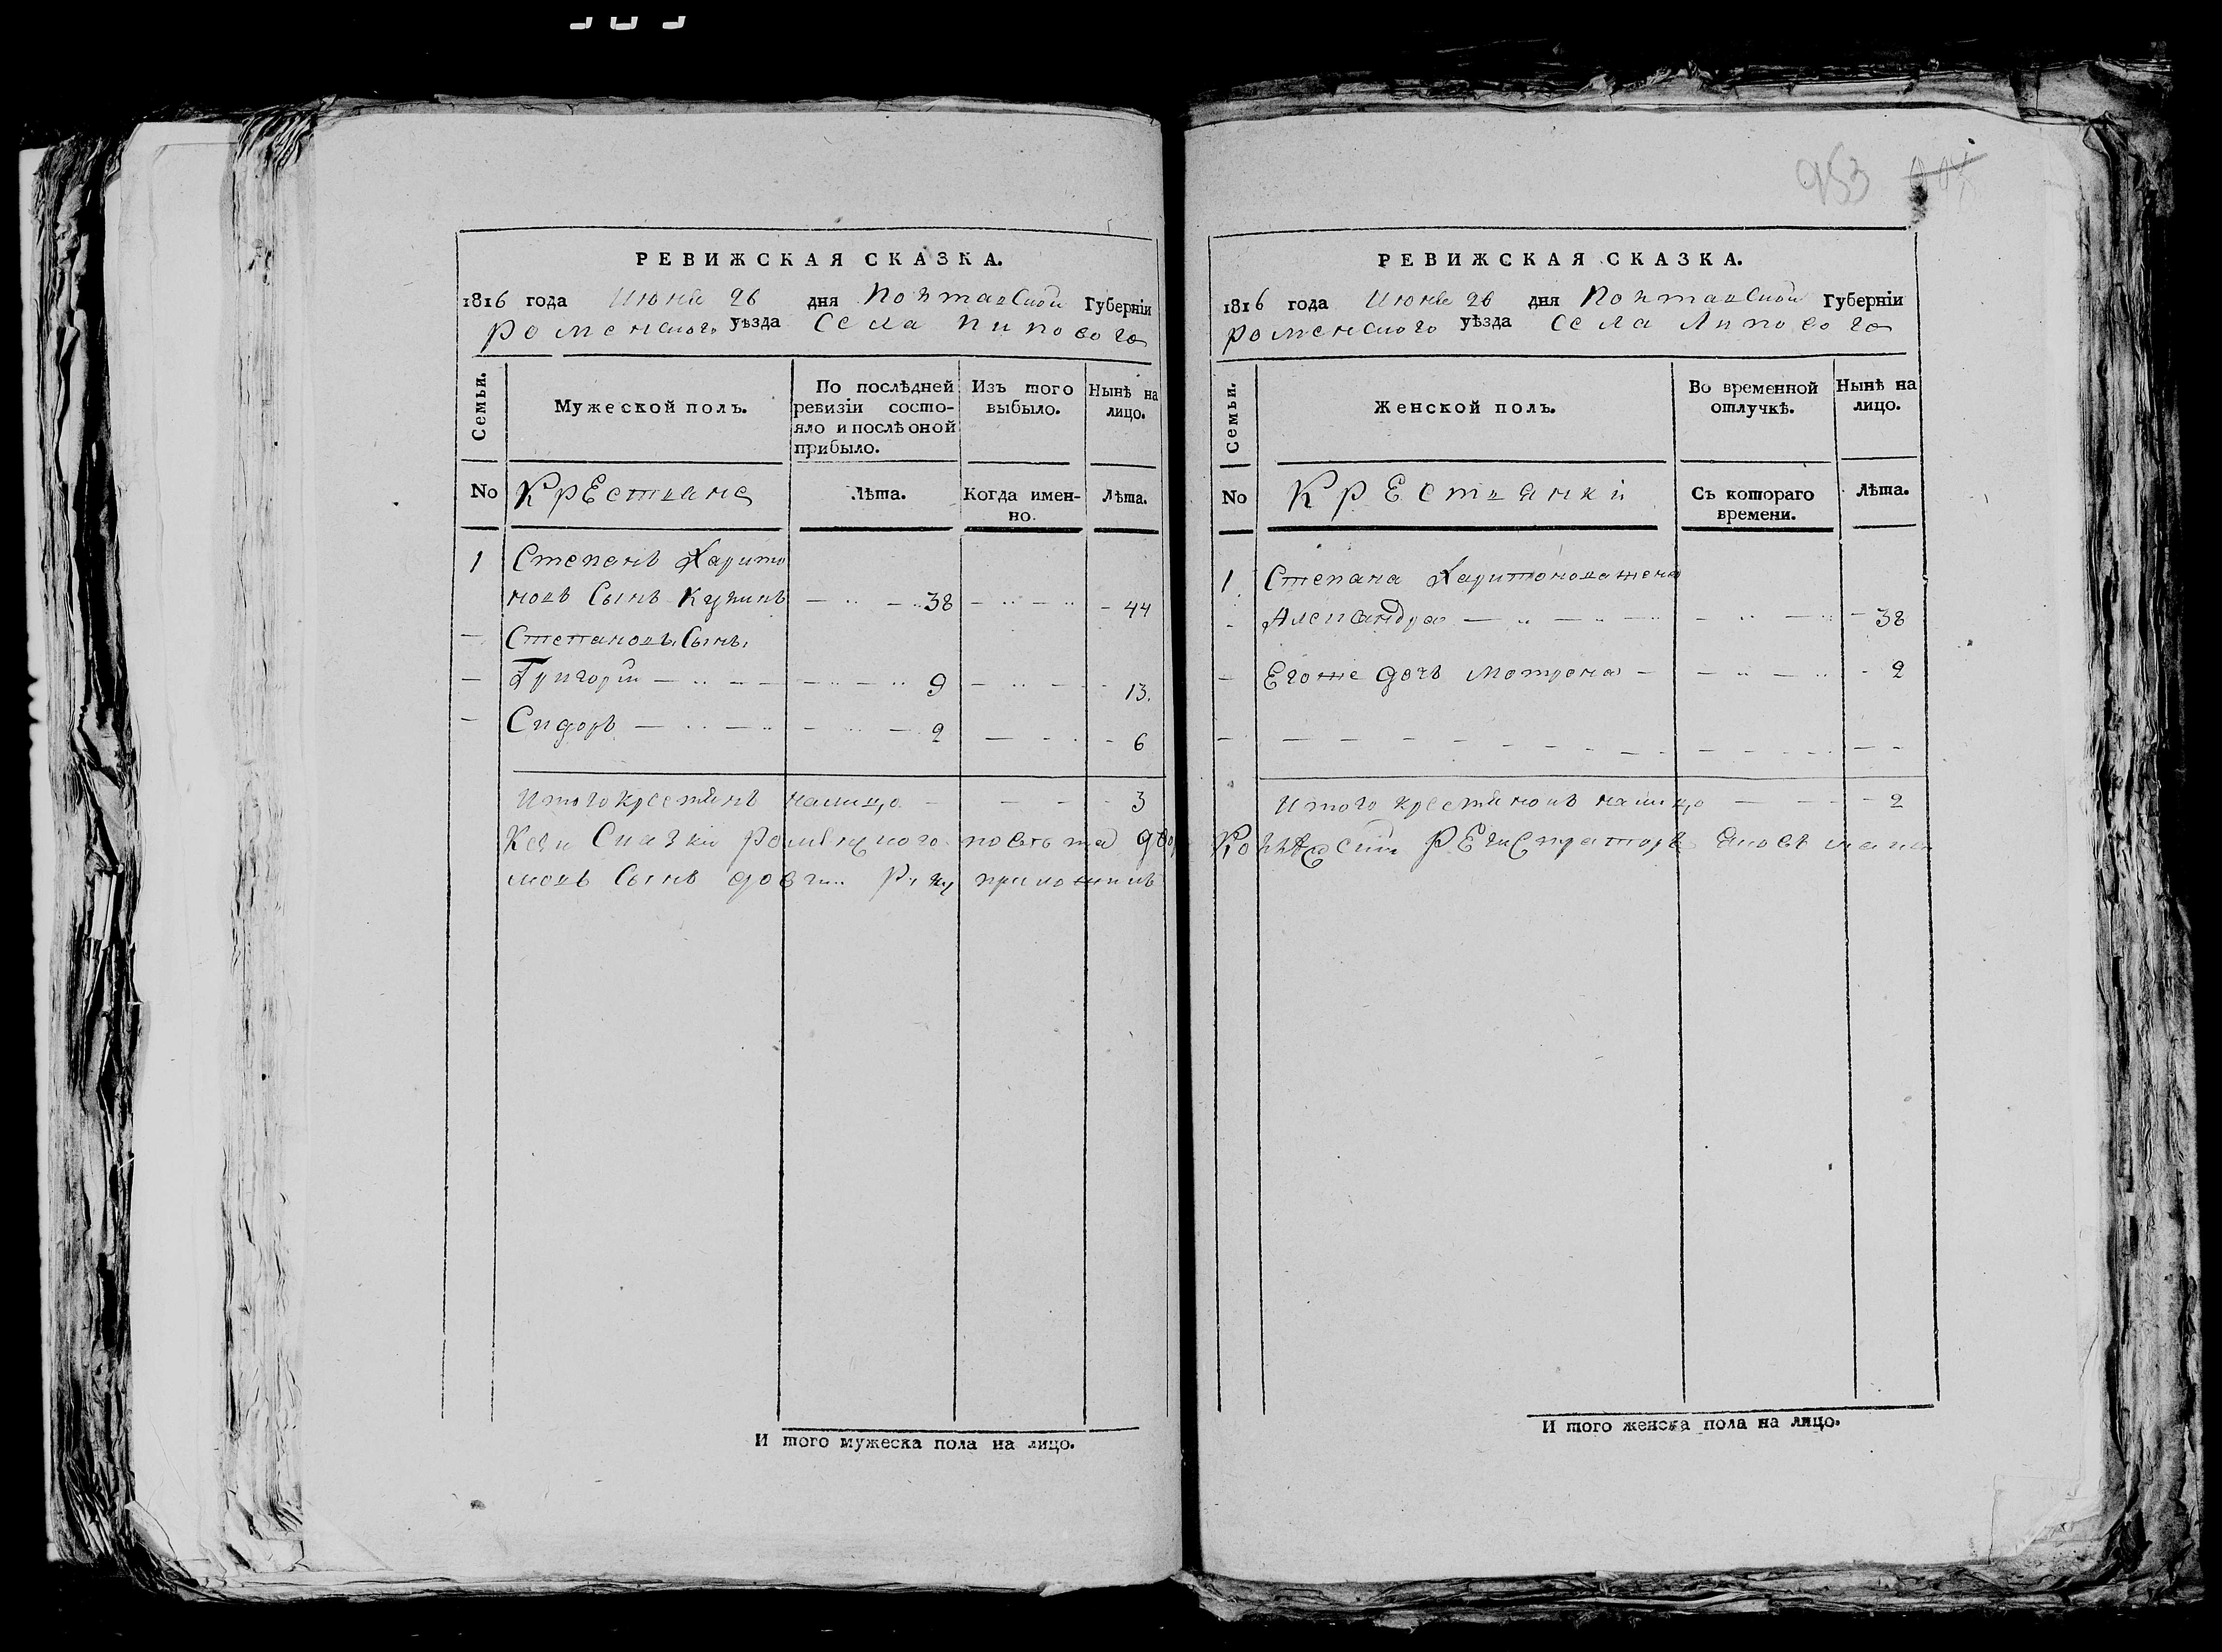 953
РЕВИЖСКАЯ СКАЗКА.
1816 года Июня 26 дня Полтавской Губернїи
Роменского уѣзда Села Липового
Семьи.
Мужеской полъ.
По послѣдней ревизїи состо-
яло и послѣ оной прибыло.
Изъ того выбыло.
Нынѣ на лицо.
No Крестяне
Лѣта.
Когда имен-
но.
Лѣта.
1 Степанъ Харито
новъ Сынъ 38 44
Степановы Сынъ
Григорїй 9 13.
Сидоръ 2 6
Итого крестянъ налицо 3
Къ сей Сказки повѣта
новъ Сынъ руку приложилъ
И того мужеска пола на лицо.
РЕВИЖСКАЯ СКАЗКА.
1816 года Июня 26 дня Полтавской Губернїи
Роменского уѣзда Села Липового
Семьи.
Женской полъ.
Во временной отлучкѣ.
Нынѣ на лицо.
No Крестянкі
Съ котораго времени.
Лѣта.
1 Степана Харитонова жена
Александра 38
Егоже дочь Мотрона 2
Итого крестянокъ налицо 2
Регистраторъ
И того женска пола на лицо.